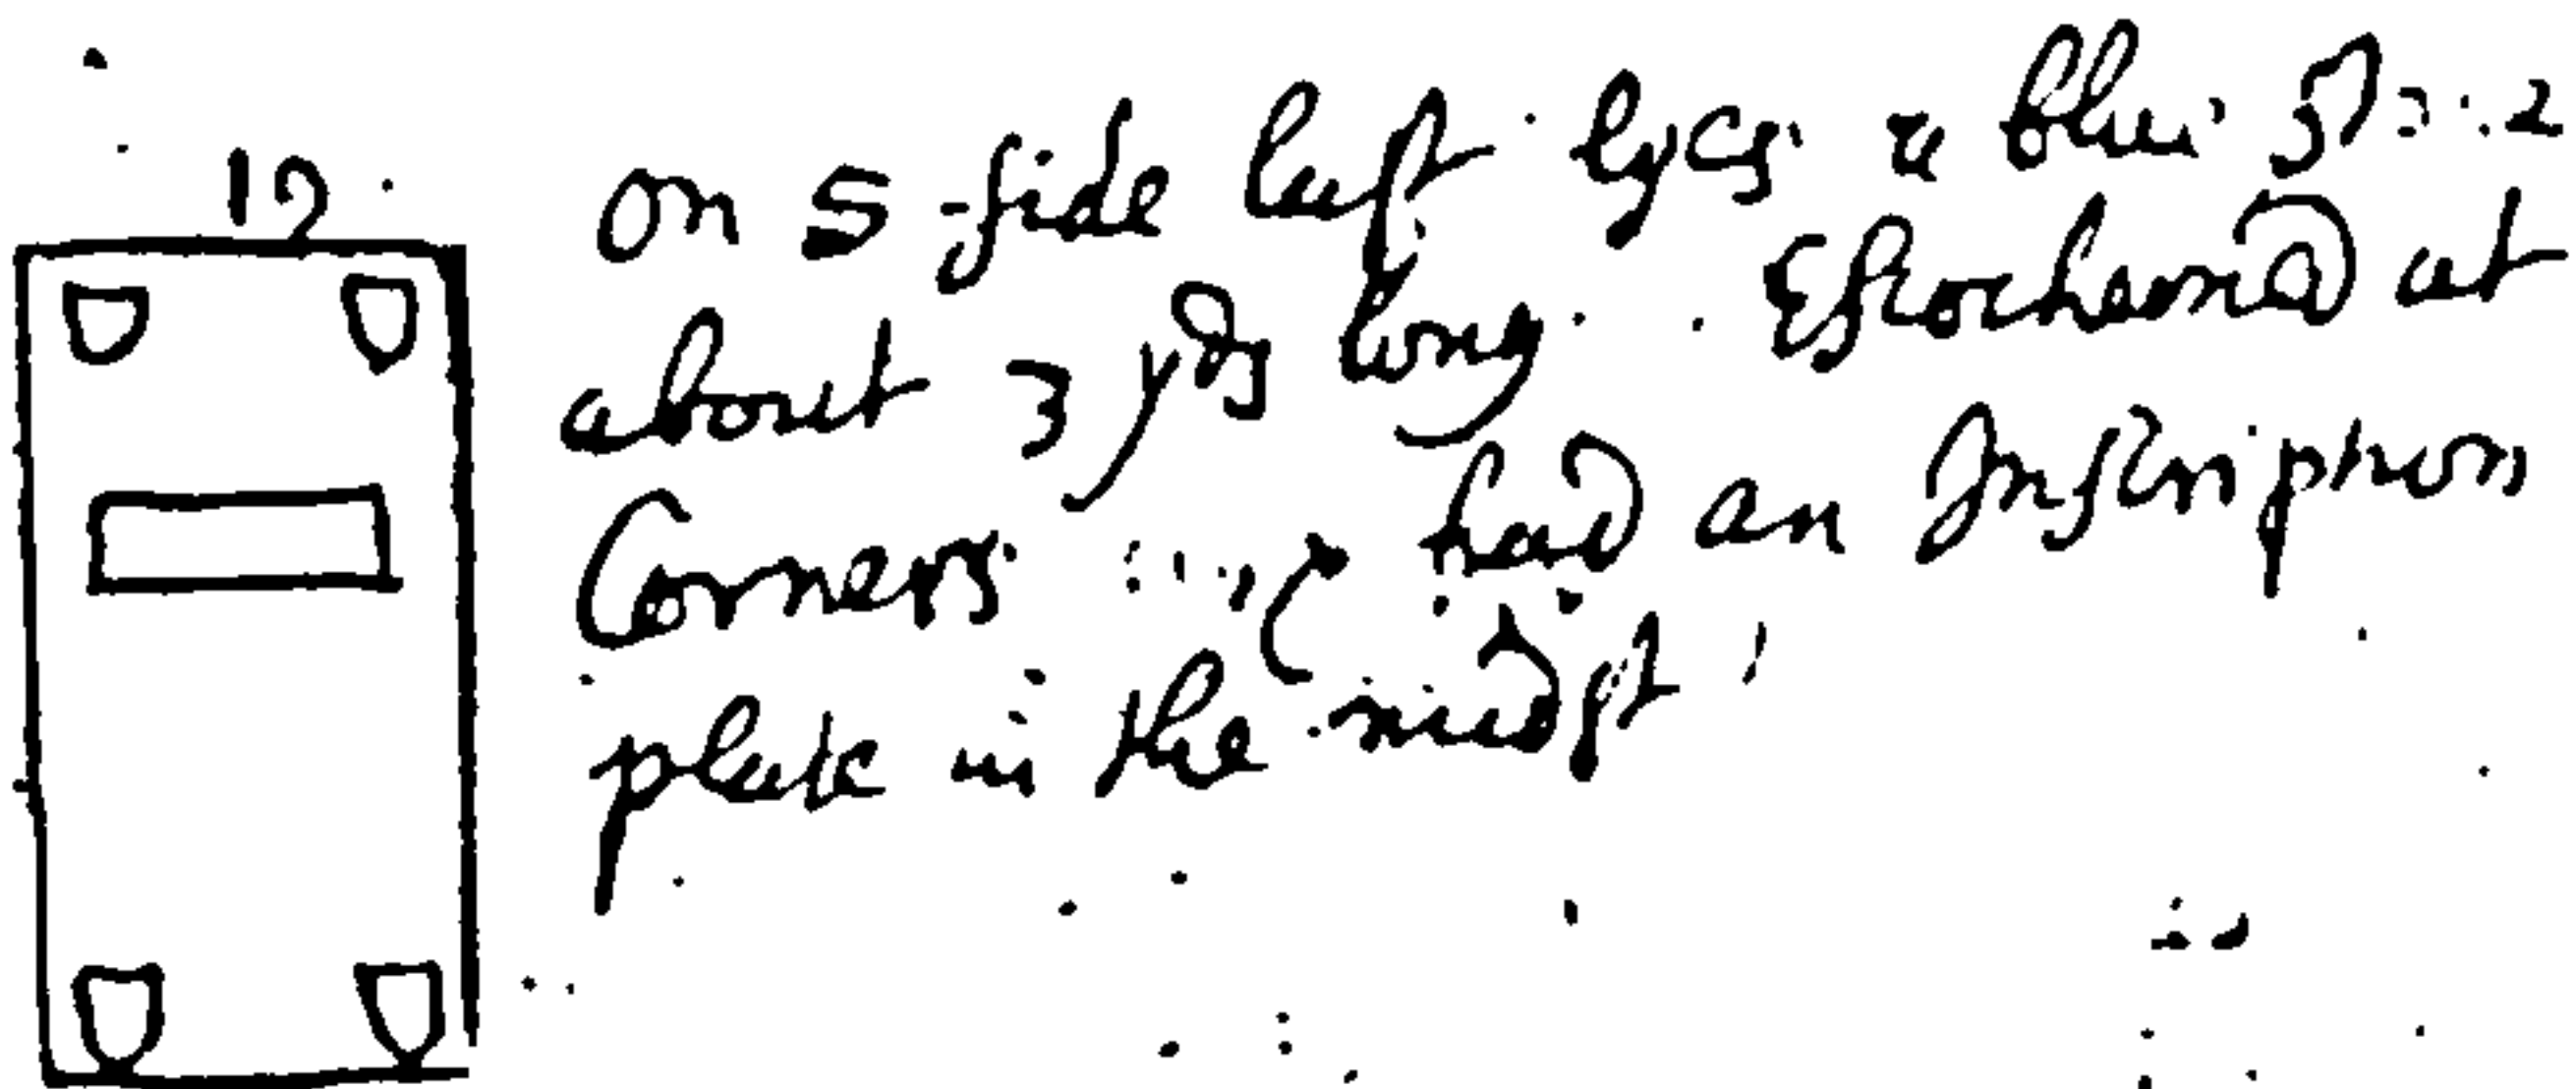 12
on S side last lyes a blue St
about 3 yds long. Escocheond at
Corners had an Inscription
plate in the midst